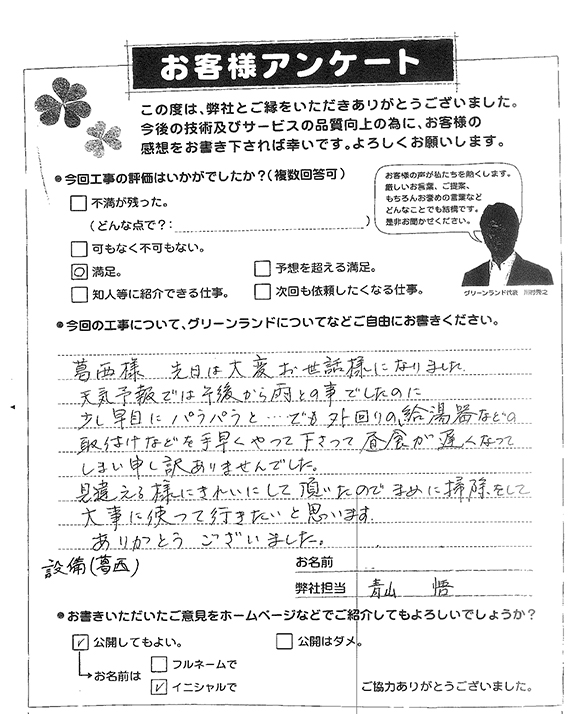 お客様アンケート
この度は、弊社とご縁をいただきありがとうございました。
今後の技術及びサービスの品質向上の為に、お客様の
感想をお書き下されば幸いです。よろしくお願いします。
●今回工事の評価はいかがでしたか?(複数回答可)
不満が残った。
(どんな点で?: )
可もなく不可もない。
満足。
予想を超える満足。
知人等に紹介できる仕事。
次回も依頼したくなる仕事。
お客様の声が私たちを動くします。
厳しいお言葉、ご提案、
もちろんお誉めの言葉など
どんなことでも結構です。
是非お聞かせください。
グリーンランド代表
●今回の工事について、グリーンランドについてなどご自由にお書きください。
葛西様 先日は大変お世話様になりました
天気予報では午後から雨との事でしたのに
少し早目にパラパラと…でも外回りの給湯器などの
取付けなどを手早くやって下さって昼食が遅くなって
しまい申し訳ありませんでした。
見違える様にきれいにして頂いたのでまめに掃除をして
大事に使って行きたいと思います。
ありがとうございました。
設備(葛西)
お名前
弊社担当 青山 悟
●お書きいただいたご意見をホームページなどでご紹介してもよろしいでしょうか?
公開してもよい。
公開はダメ。
お名前は
フルネームで
イニシャルで
ご協力ありがとうございました。